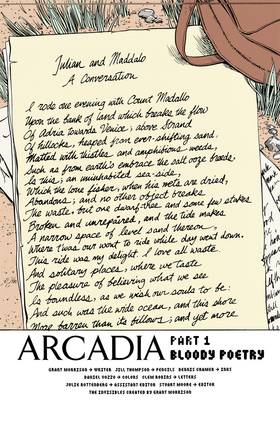 Julian and Maddalo
A Conversation
I rode one evening with Count Madallo
Upon the bank of land which breaks the flow
Of Adria towards Venice; above Strand
Of hillocks, heaped from ever-shifting sand,
Matted with thistles and amphibious weeds,
Such as from earth's embrace the salt ooze breeds,
Is this; an uninhabited sea-side,
Which the lone fisher, when his nets are dried,
Abandons; and no other object breaks
The waste, but one dwarf-tree and some few stakes
Broken and unrepaired, and the tide makes
A narrow space of level sand thereon,
Where 'twas our wont to ride while day went down.
This ride was my delight. I love all waste
And solitary places, where we taste
The pleasure of believing what we see
Is boundless, as we wish our souls to be:
And such was the wide ocean, and this shore
More barren than its billows; and yet more
ARCADIA PART 1
BLOODY POETRY
GRANT MORRISON → WRITER JILL THOMPSON → PENCILS DENNIS CRAMER → INKS
DANIEL VOZZO → COLORS CLEM ROBINS → LETTERS
JULIE ROTTENBERG → ASSISTANT EDITOR STUART MOORE → EDITOR
THE INVISIBLES CREATED BY GRANT MORRISON